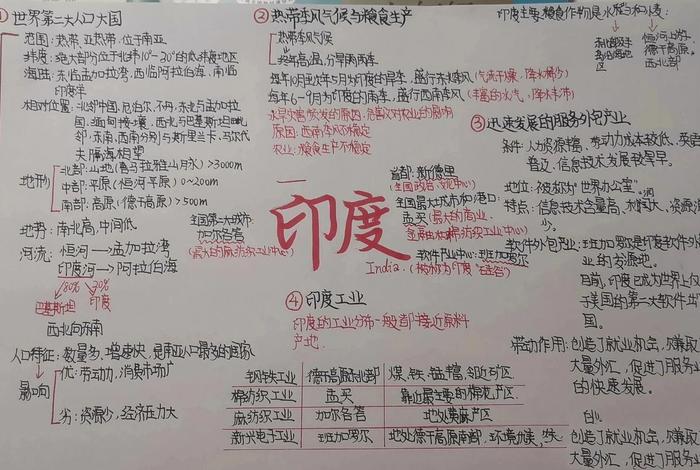 ① 世界第二大人口大国
范围:热带、亚热带,位于南亚
纬度:绝大部分位于北纬10°-30°的低纬度地区
海陆:东临孟加拉湾,西临阿拉伯海,南临
印度洋
相对位置:北邻中国,尼泊尔,不丹,东北与孟加拉
国,缅甸接壤,西北与巴基斯坦毗
邻,东南,西南分别与斯里兰卡、马尔代
夫隔海相望
地形
北部:山地(喜马拉雅山月永)>3000m
中部:平原(恒河平原)0~200m
南部:高原(德干高原)>500m
地势:南北高,中间低
河流:恒河→孟加拉湾
印度河→阿拉伯海
80% 20%
巴基斯坦 印度
西北向东南
人口特征:数量多,增速快,是南亚人口最多的国家
影响
优:劳动力,消费市场广
劣:资源少,经济压力大
② 热带季风气候与粮食生产
热带季风气候
终年高温,分旱雨两季
每年10月至次年5月为印度的旱季,盛行东北季风(气流干燥,降水稀少)
每年6-9月为印度的雨季,盛行西南季风(丰富的水气,降水丰沛)
水旱灾害频发的原因,危害以对农业的影响
原因:西南季风不稳定
农业:粮食生产不稳定
全国第二大城市:
加尔各答
(最大的麻纺织工业中心)
印度
India.
首都:新德里
(全国政治、文化中心)
全国最大城市和港口:
孟买(最大的商业,
金融中心和棉纺织工业中心)
软件产业中心:班加罗尔
(被称为印度“硅谷”)
④ 印度工业
印度的工业分布一般都接近原料
产地.
钢铁工业 德干高原东北部 煤、铁、锰丰富,邻近矿区
棉纺织工业 孟买 靠近最主要的棉花产区
麻纺织工业 加尔各答 地处黄麻产区
新兴电子工业 班加罗尔 地处德干高原南部,环境优美,
印度主要粮食作物是水稻和小麦:
东北部及半
区
恒河上游
德干高原.
西北部
③ 迅速发展的服务外包产业
条件:人力资源丰富,劳动力成本较低,英语
普边,信息技术发展较早早。
地位:被称为“世界办公室”。
特点:信息技术含量高、附加值大、资源消
少。
软件外包产业:班加罗尔是印度软件外
业的发源地.
目前,印度已成为世界上仅
于美国的第二大软件出
国.
带动作用:创造了就业机会,赚取
大量外汇,促进了服务业
的快速发展.
创造了就业机会,赚取
大量外汇,促进了服务业